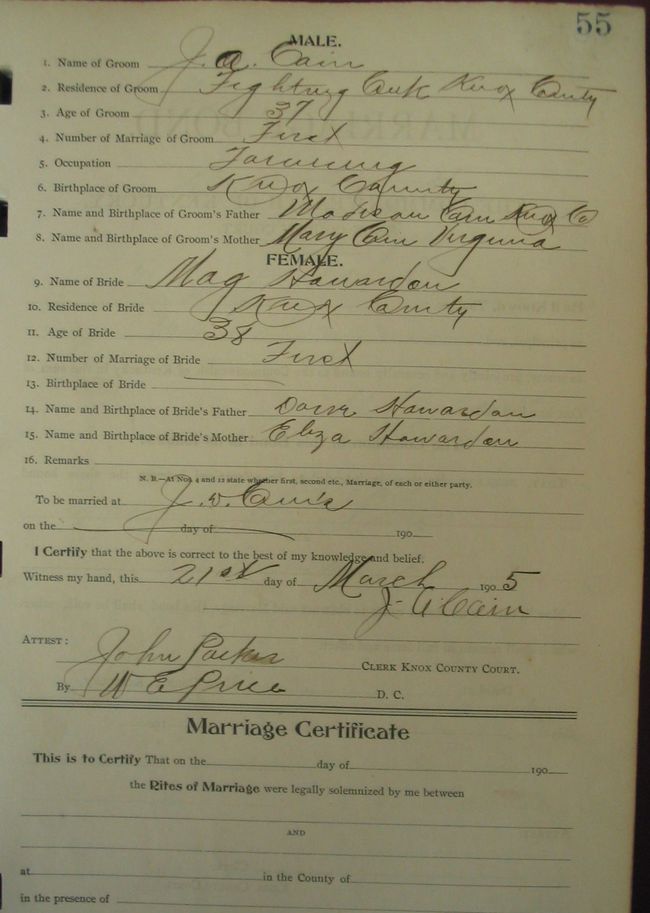 55
MALE.
1. Name of Groom J. A. Cain
2. Residence of Groom Fighting Creek Knox County
3. Age of Groom 37
4. Number of Marriage of Groom First
5. Occupation Farming
6. Birthplace of Groom Knox County
7. Name and Birthplace of Groom's Father Madison Cain Knox Co
8. Name and Birthplace of Groom's Mother Mary Cain Virginia
FEMALE.
9. Name of Bride Mag Hawardon
10. Residence of Bride Knox County
11. Age of Bride 38
12. Number of Marriage of Bride First
13. Birthplace of Bride
14. Name and Birthplace of Bride's Father Hawardon
15. Name and Birthplace of Bride's Mother Eliza Hawardon
16. Remarks
N. B.—At Nos. 4 and 12 state whether first, second etc., Marriage, of each or either party.
To be married at J. W.
on the day of 190
I Certify that the above is correct to the best of my knowledge and belief.
Witness my hand, this 21st day of March 1905
J. A. Cain
ATTEST:
John Parker CLERK KNOX COUNTY COURT.
By W E Price D. C.
Marriage Certificate
This is to Certify That on the day of 190
the Rites of Marriage were legally solemnized by me between
AND
at in the County of
in the presence of